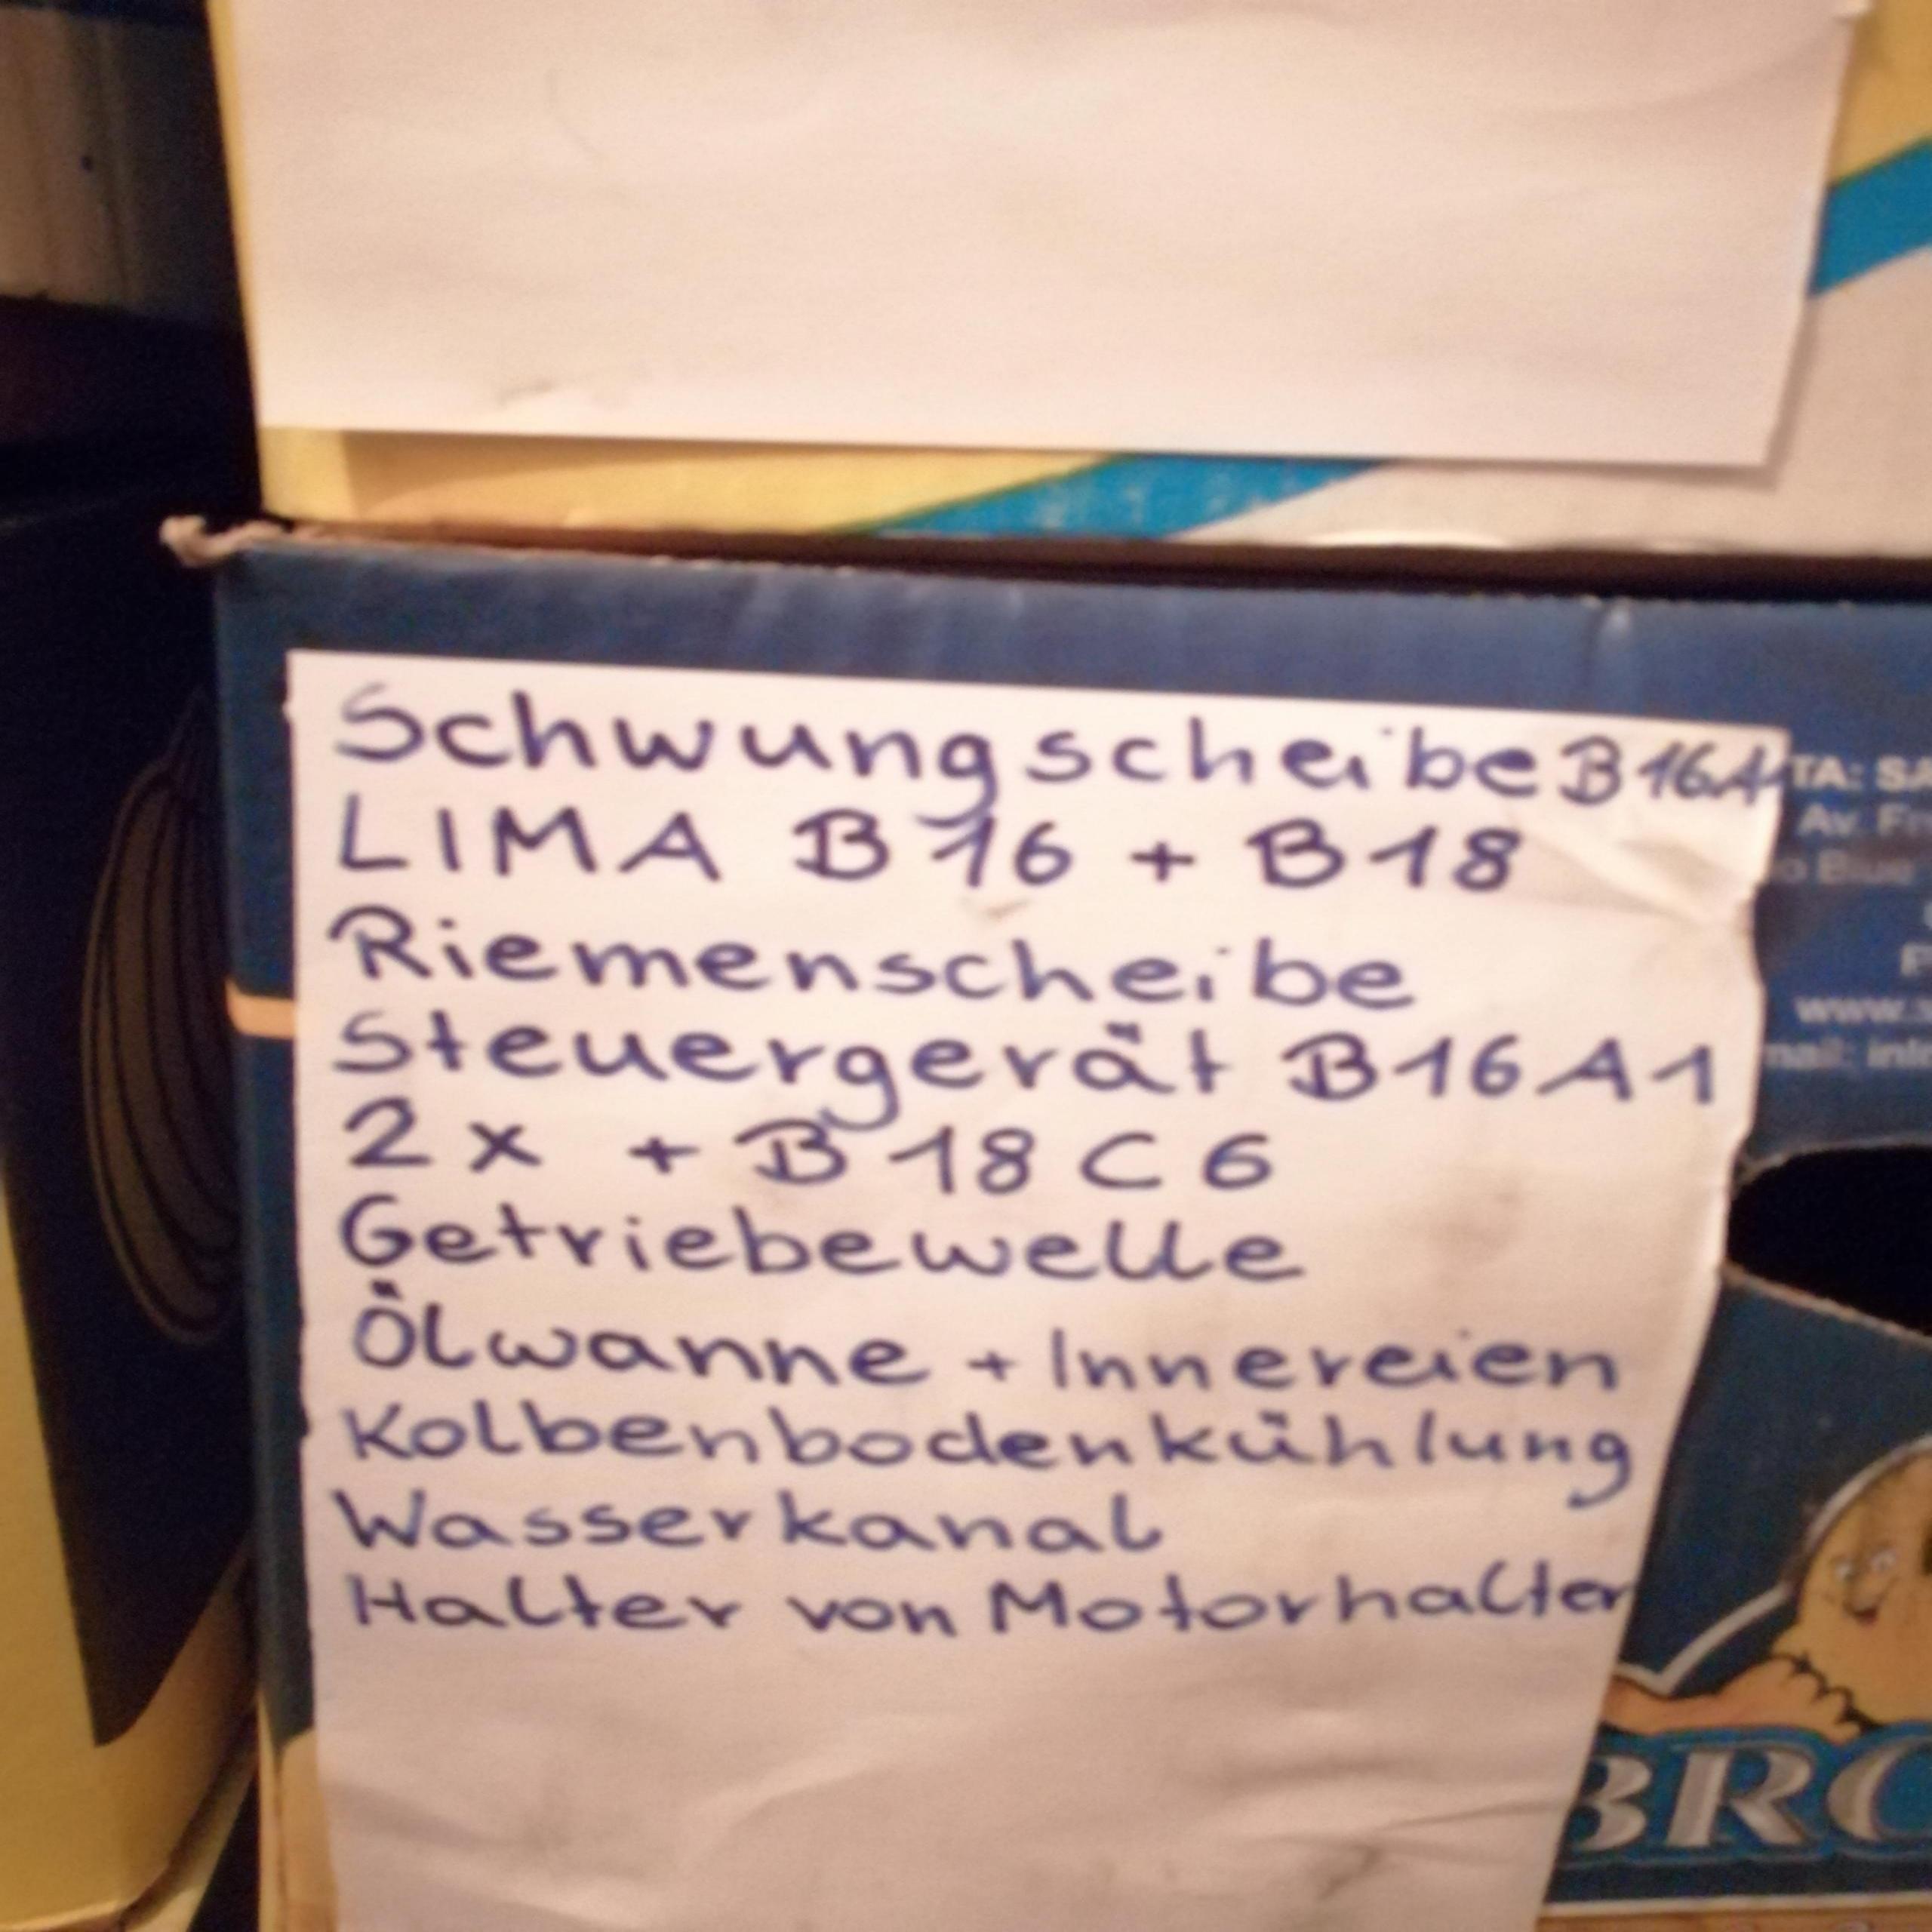 Schwungscheibe B16A1
LIMA B16 + B18
Riemenscheibe
Steuergerät B16A1
2x + B18C6
Getriebewelle
Ölwanne + Innereien
Kolbenbodenkühlung
Wasserkanal
Halter von Motorhalter
TA: SA
Av. Fr
o Blue
www.s
mail: in
BRO